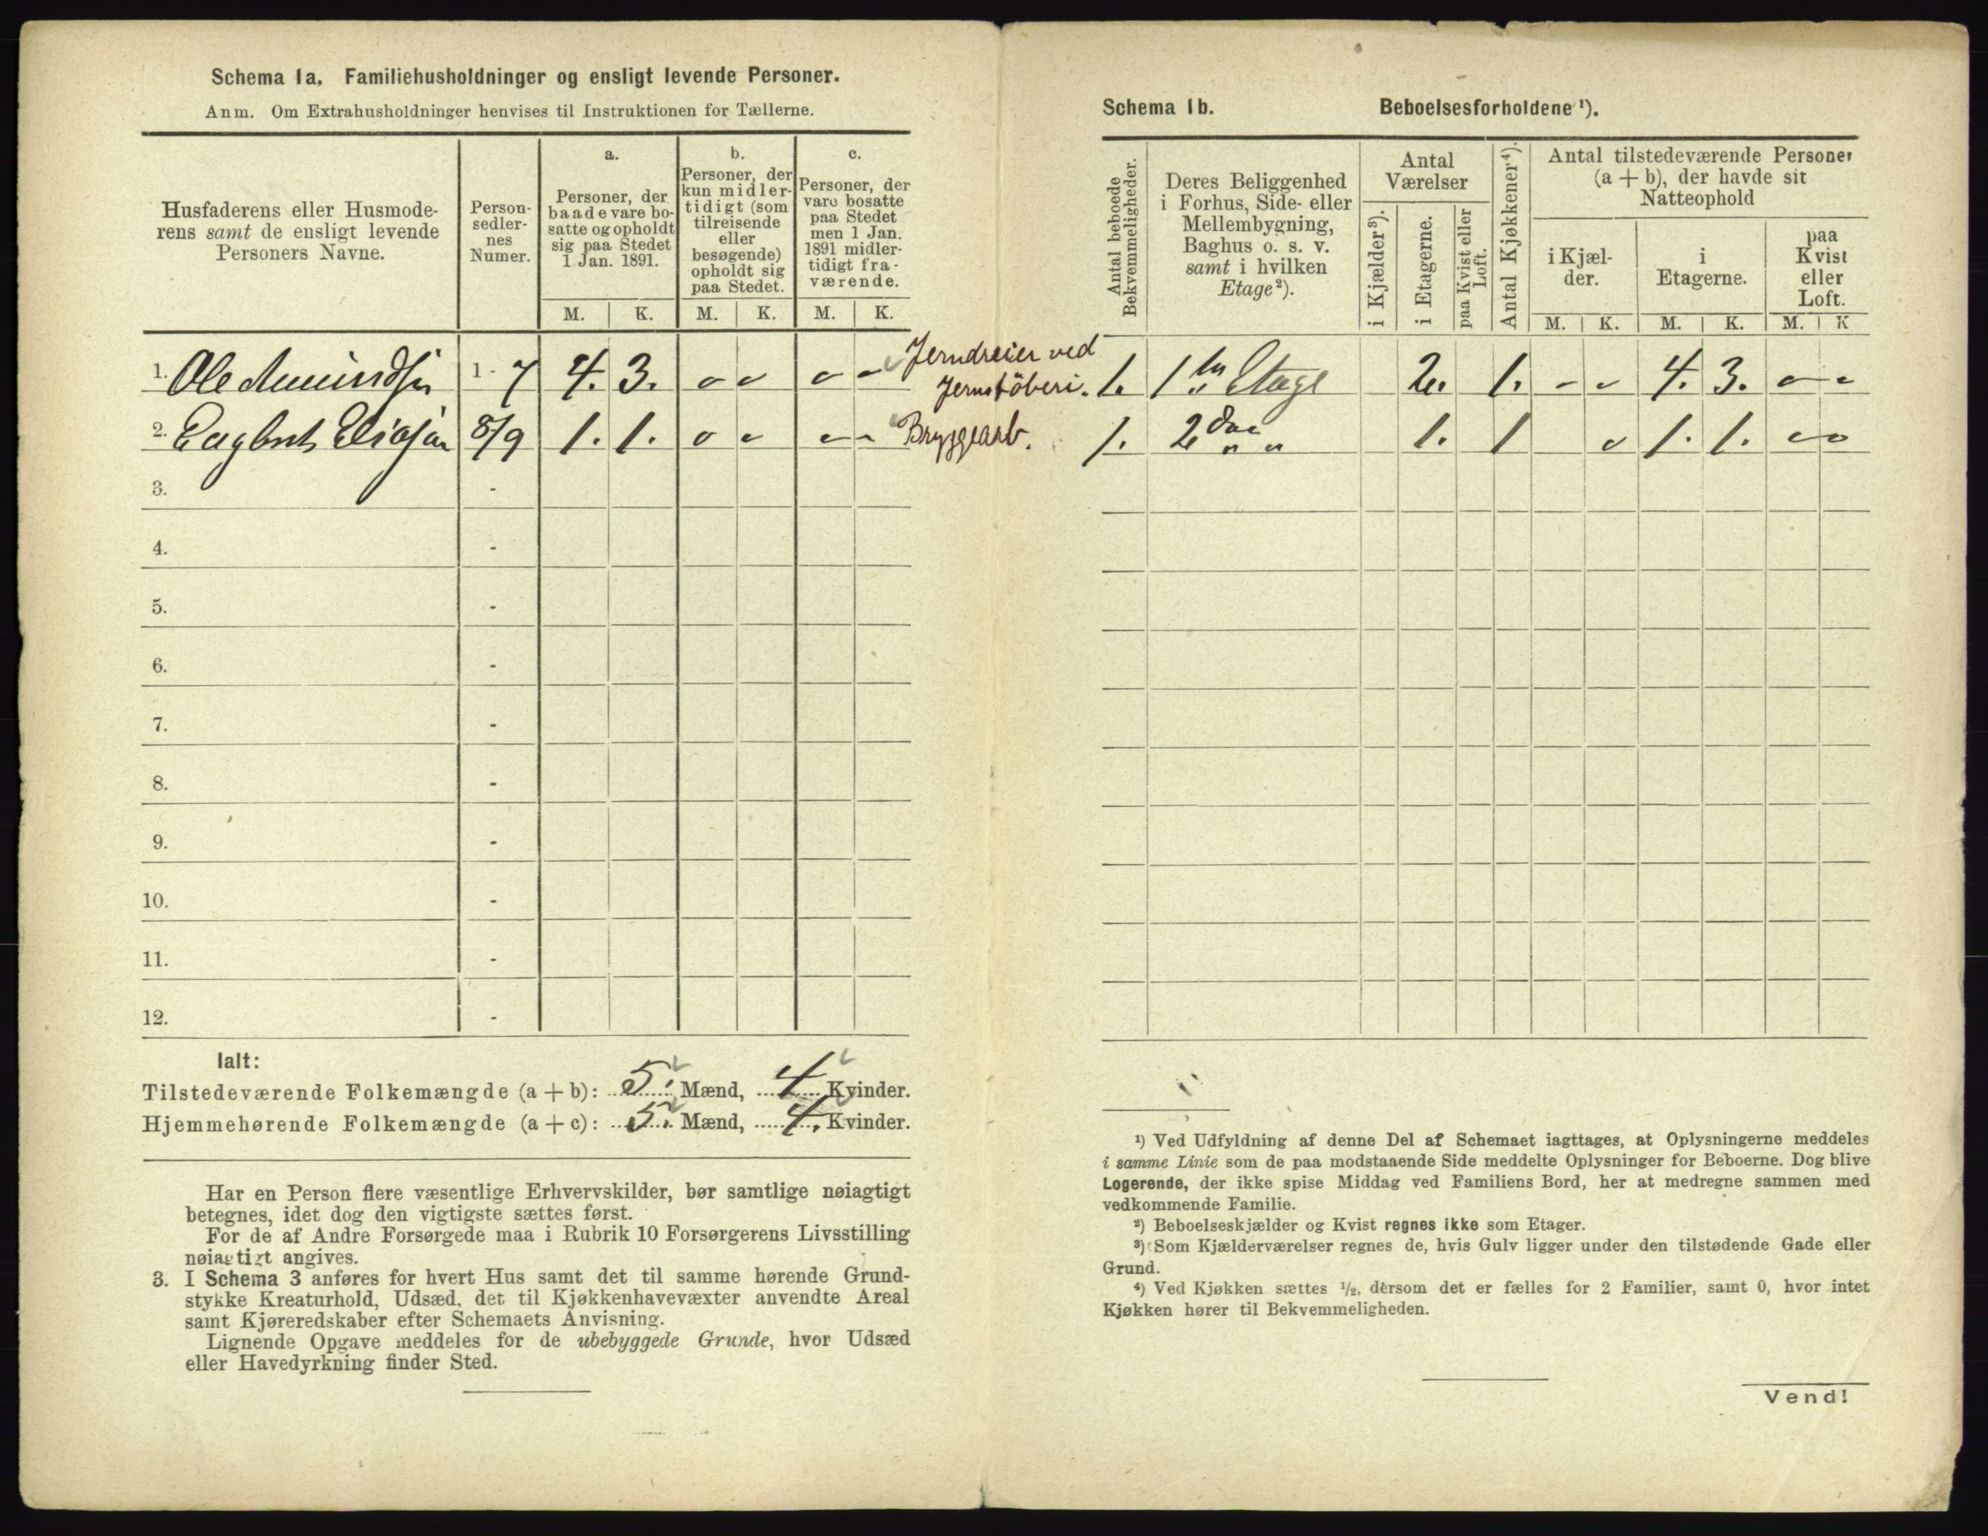 Schema 1a. Familiehusholdninger og ensligt levende Personer.
Anm. Om Extrahusholdninger henvises til Instruktionen for Tællerne.
Husfaderens eller Husmode-
rens samt de ensligt levende
Personers Navne.
Person-
sedler-
nes
Numer.
a.
Personer, der
baade vare bo-
satte og opholdt
sig paa Stedet
1 Jan. 1891.
b.
Personer, der
kun midler-
tidigt (som
tilreisende
eller
besøgende)
opholdt sig
paa Stedet.
c.
Personer, der
vare bosatte
paa Stedet
men 1 Jan.
1891 midler-
tidigt fra-
værende.
M. K. M. K. M. K.
1. Ole Amundsen 1 - 7 4. 3. Jerndreier ved
Jernstöberi.
2. Engbret 8/9 1. 1. Bryggearb.
3. -
4. -
5. -
6. -
7. -
8. -
9. -
10. -
11. -
12. -
Ialt:
Tilstedeværende Folkemængde (a + b): 5. Mænd, 4 Kvinder.
Hjemmehørende Folkemængde (a + c): 5. Mænd, 4. Kvinder.
Har en Person flere væsentlige Erhvervskilder, bør samtlige nøiagtigt
betegnes, idet dog den vigtigste sættes først.
For de af Andre Forsørgede maa i Rubrik 10 Forsørgerens Livsstilling
nøiagtigt angives.
3. I Schema 3 anføres for hvert Hus samt det til samme hørende Grund-
stykke Kreaturhold, Udsæd, det til Kjøkkenhavevæxter anvendte Areal
samt Kjøreredskaber efter Schemaets Anvisning.
Lignende Opgave meddeles for de ubebyggede Grunde, hvor Udsæd
eller Havedyrkning finder Sted.
Schema 1b. Beboelsesforholdene ¹).
Antal beboede
Bekvemmeligheder.
Deres Beliggenhed
i Forhus, Side- eller
Mellembygning,
Baghus o. s. v.
samt i hvilken
Etage²).
Antal
Værelser
i Kjælder³).
i Etagerne.
paa Kvist eller
Loft.
Antal Kjøkkener⁴).
Antal tilstedeværende Personer
(a + b), der havde sit
Natteophold
i Kjæl-
der.
i
Etagerne.
paa
Kvist
eller
Loft.
M. K. M. K. M. K
1. 1ste Etage 2. 1. 4. 3.
1. 2den " " 1. 1 1. 1.
¹) Ved Udfyldning af denne Del af Schemaet iagttages, at Oplysningerne meddeles
i samme Linie som de paa modstaaende Side meddelte Oplysninger for Beboerne. Dog blive
Logerende, der ikke spise Middag ved Familiens Bord, her at medregne sammen med
vedkommende Familie.
²) Beboelseskjælder og Kvist regnes ikke som Etager.
³) Som Kjælderværelser regnes de, hvis Gulv ligger under den tilstødende Gade eller
Grund.
⁴) Ved Kjøkken sættes ½, dersom det er fælles for 2 Familier, samt 0, hvor intet
Kjøkken hører til Bekvemmeligheden.
Vend!